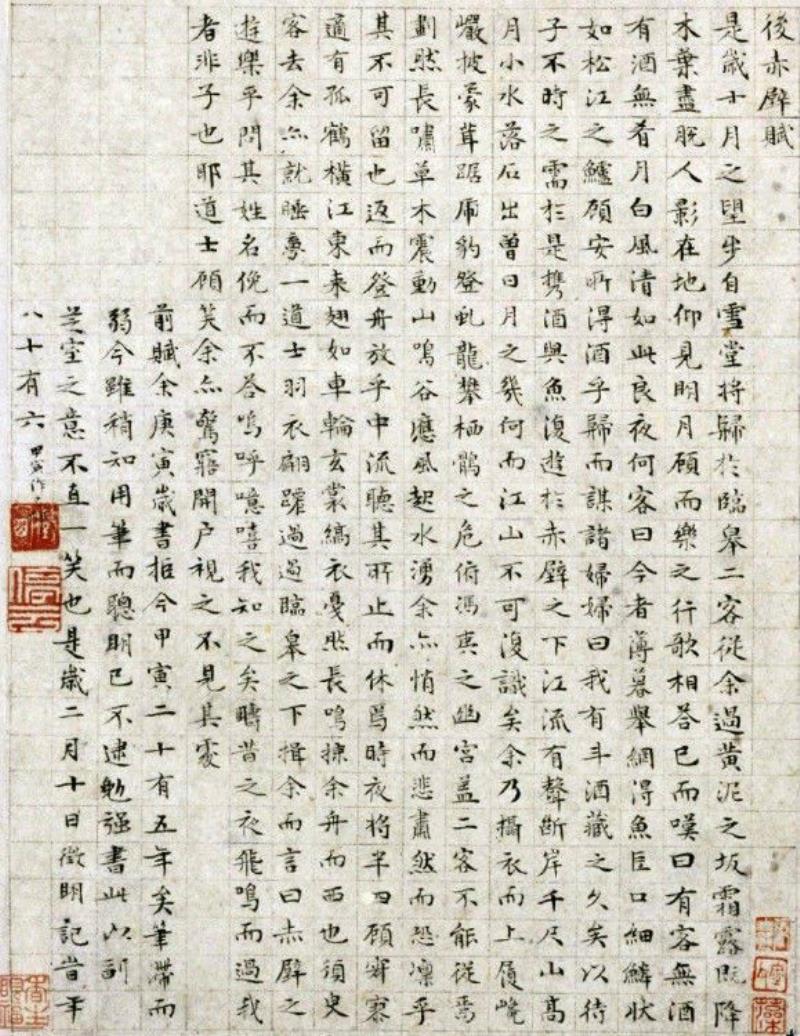 後赤壁賦
是歲十月之望步自雪堂將歸於臨皋二客從余過黃泥之坂霜露既降
木葉盡脫人影在地仰見明月顧而樂之行歌相答已而嘆曰有客無酒
有酒無肴月白風清如此良夜何客曰今者薄暮舉網得魚巨口細鱗狀
如松江之鱸顧安所得酒乎歸而謀諸婦婦曰我有斗酒藏之久矣以待
子不時之需於是携酒與魚復遊於赤壁之下江流有聲斷岸千尺山高
月小水落石出曾日月之幾何而江山不可復識矣余乃攝衣而上履巉
巖披蒙茸踞虎豹登虬龍攀栖鶻之危俯馮夷之幽宮盖二客不能從焉
劃然長嘯草木震動山鳴谷應風起水湧余亦悄然而悲肅然而恐凜乎
其不可留也返而登舟放乎中流聽其所止而休焉時夜將半四顧寂寥
適有孤鶴橫江東来翅如車輪玄裳縞衣戛然長鳴掠余舟而西也須臾
客去余亦就睡夢一道士羽衣翩躚過過臨皋之下揖余而言曰赤壁之
遊樂乎問其姓名俛而不答嗚呼噫嘻我知之矣疇昔之夜飛鳴而過我
者非子也耶道士顧笑余亦驚寤開户視之不見其處
前賦余庚寅歲書抵今甲寅二十有五年矣筆滯而
弱今雖稍知用筆而聰明已不逮勉强書此以副
芝室之意不直一笑也是歲二月十日徵明記昔年
八十有六
甲寅作